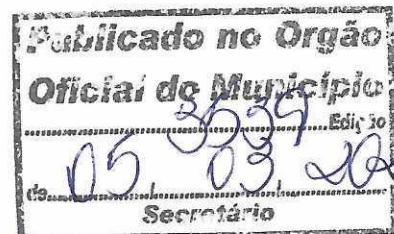 Publicado no Orgão
Oficial do Município
Edição
de 05 03 20
Secretário